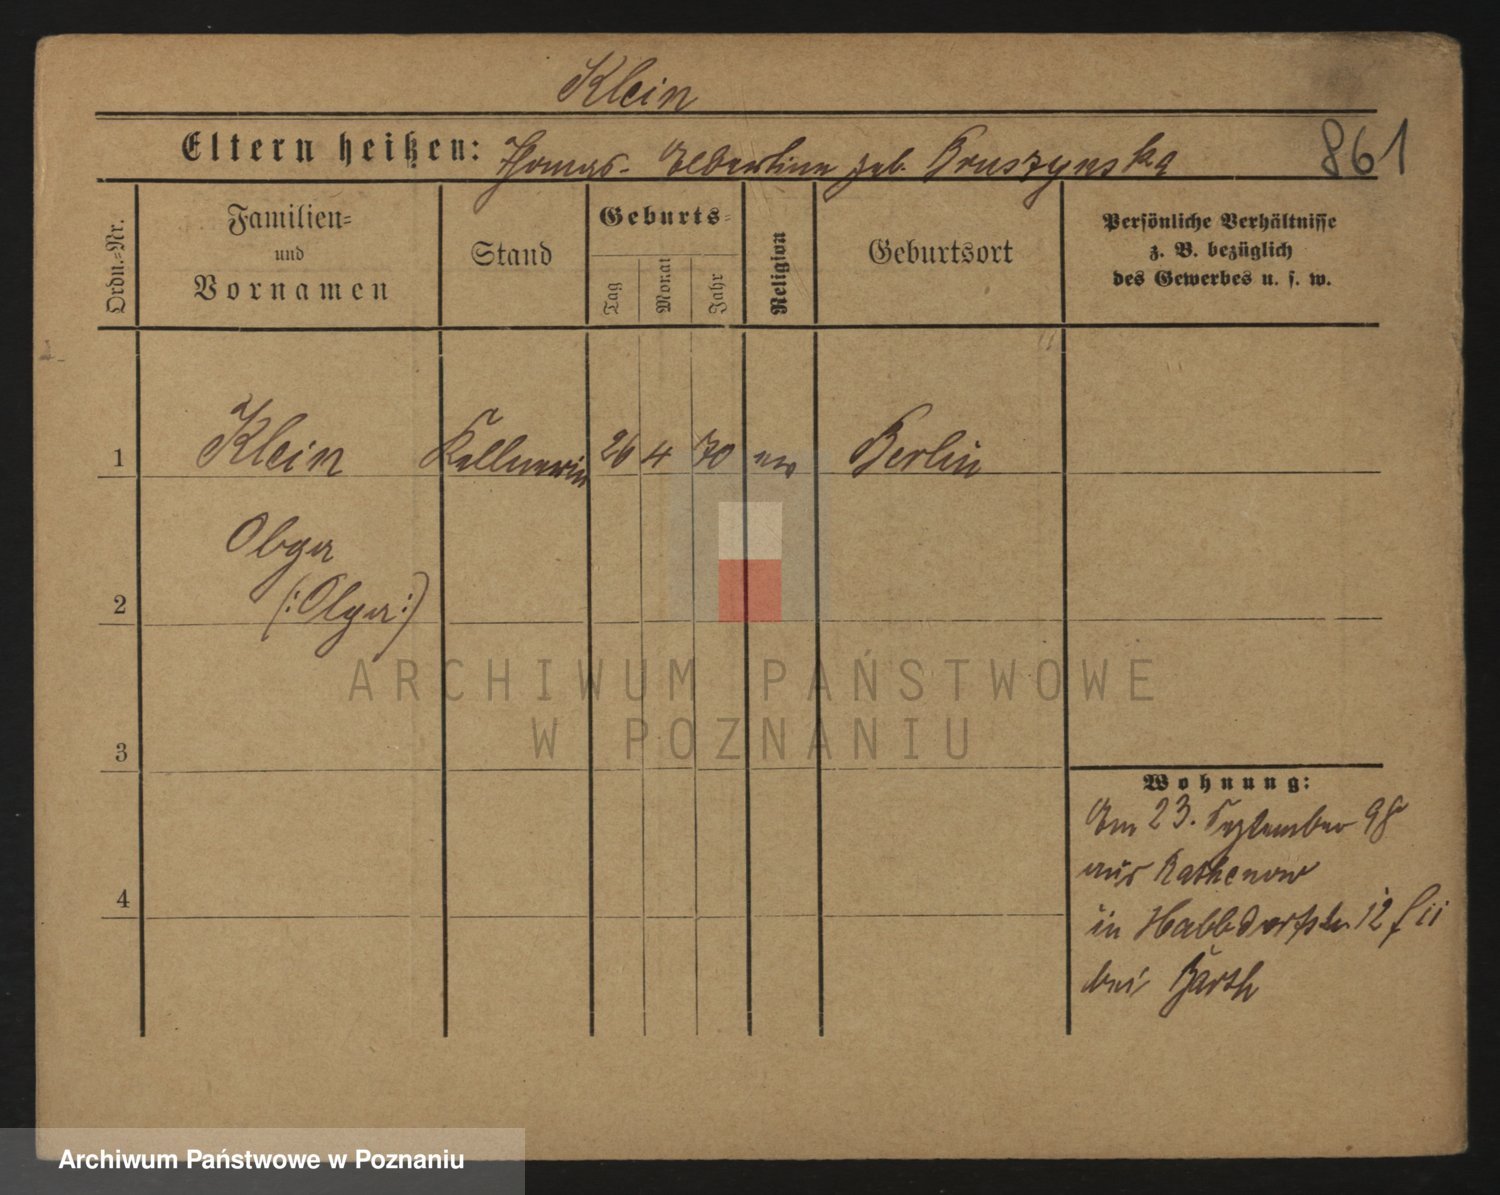 Klein
861
Eltern heißen: Thomas - Albertine geb. Pruszynska
Ordn.-Nr.
Familien- und Vornamen
Stand
Geburts-
Tag
Monat
Jahr
Religion
Geburtsort
Persönliche Verhältnisse
z. B. bezüglich
des Gewerbes u. s. w.
1 Klein Kellnerin 26 4 70 ev Berlin
Olga
2 (:Olga:)
3
4
Wohnung:
Am 23. September 98
aus Rathenow
in 12
bei Barth
ARCHIWUM PAŃSTWOWE
W POZNANIU
Archiwum Państwowe w Poznaniu